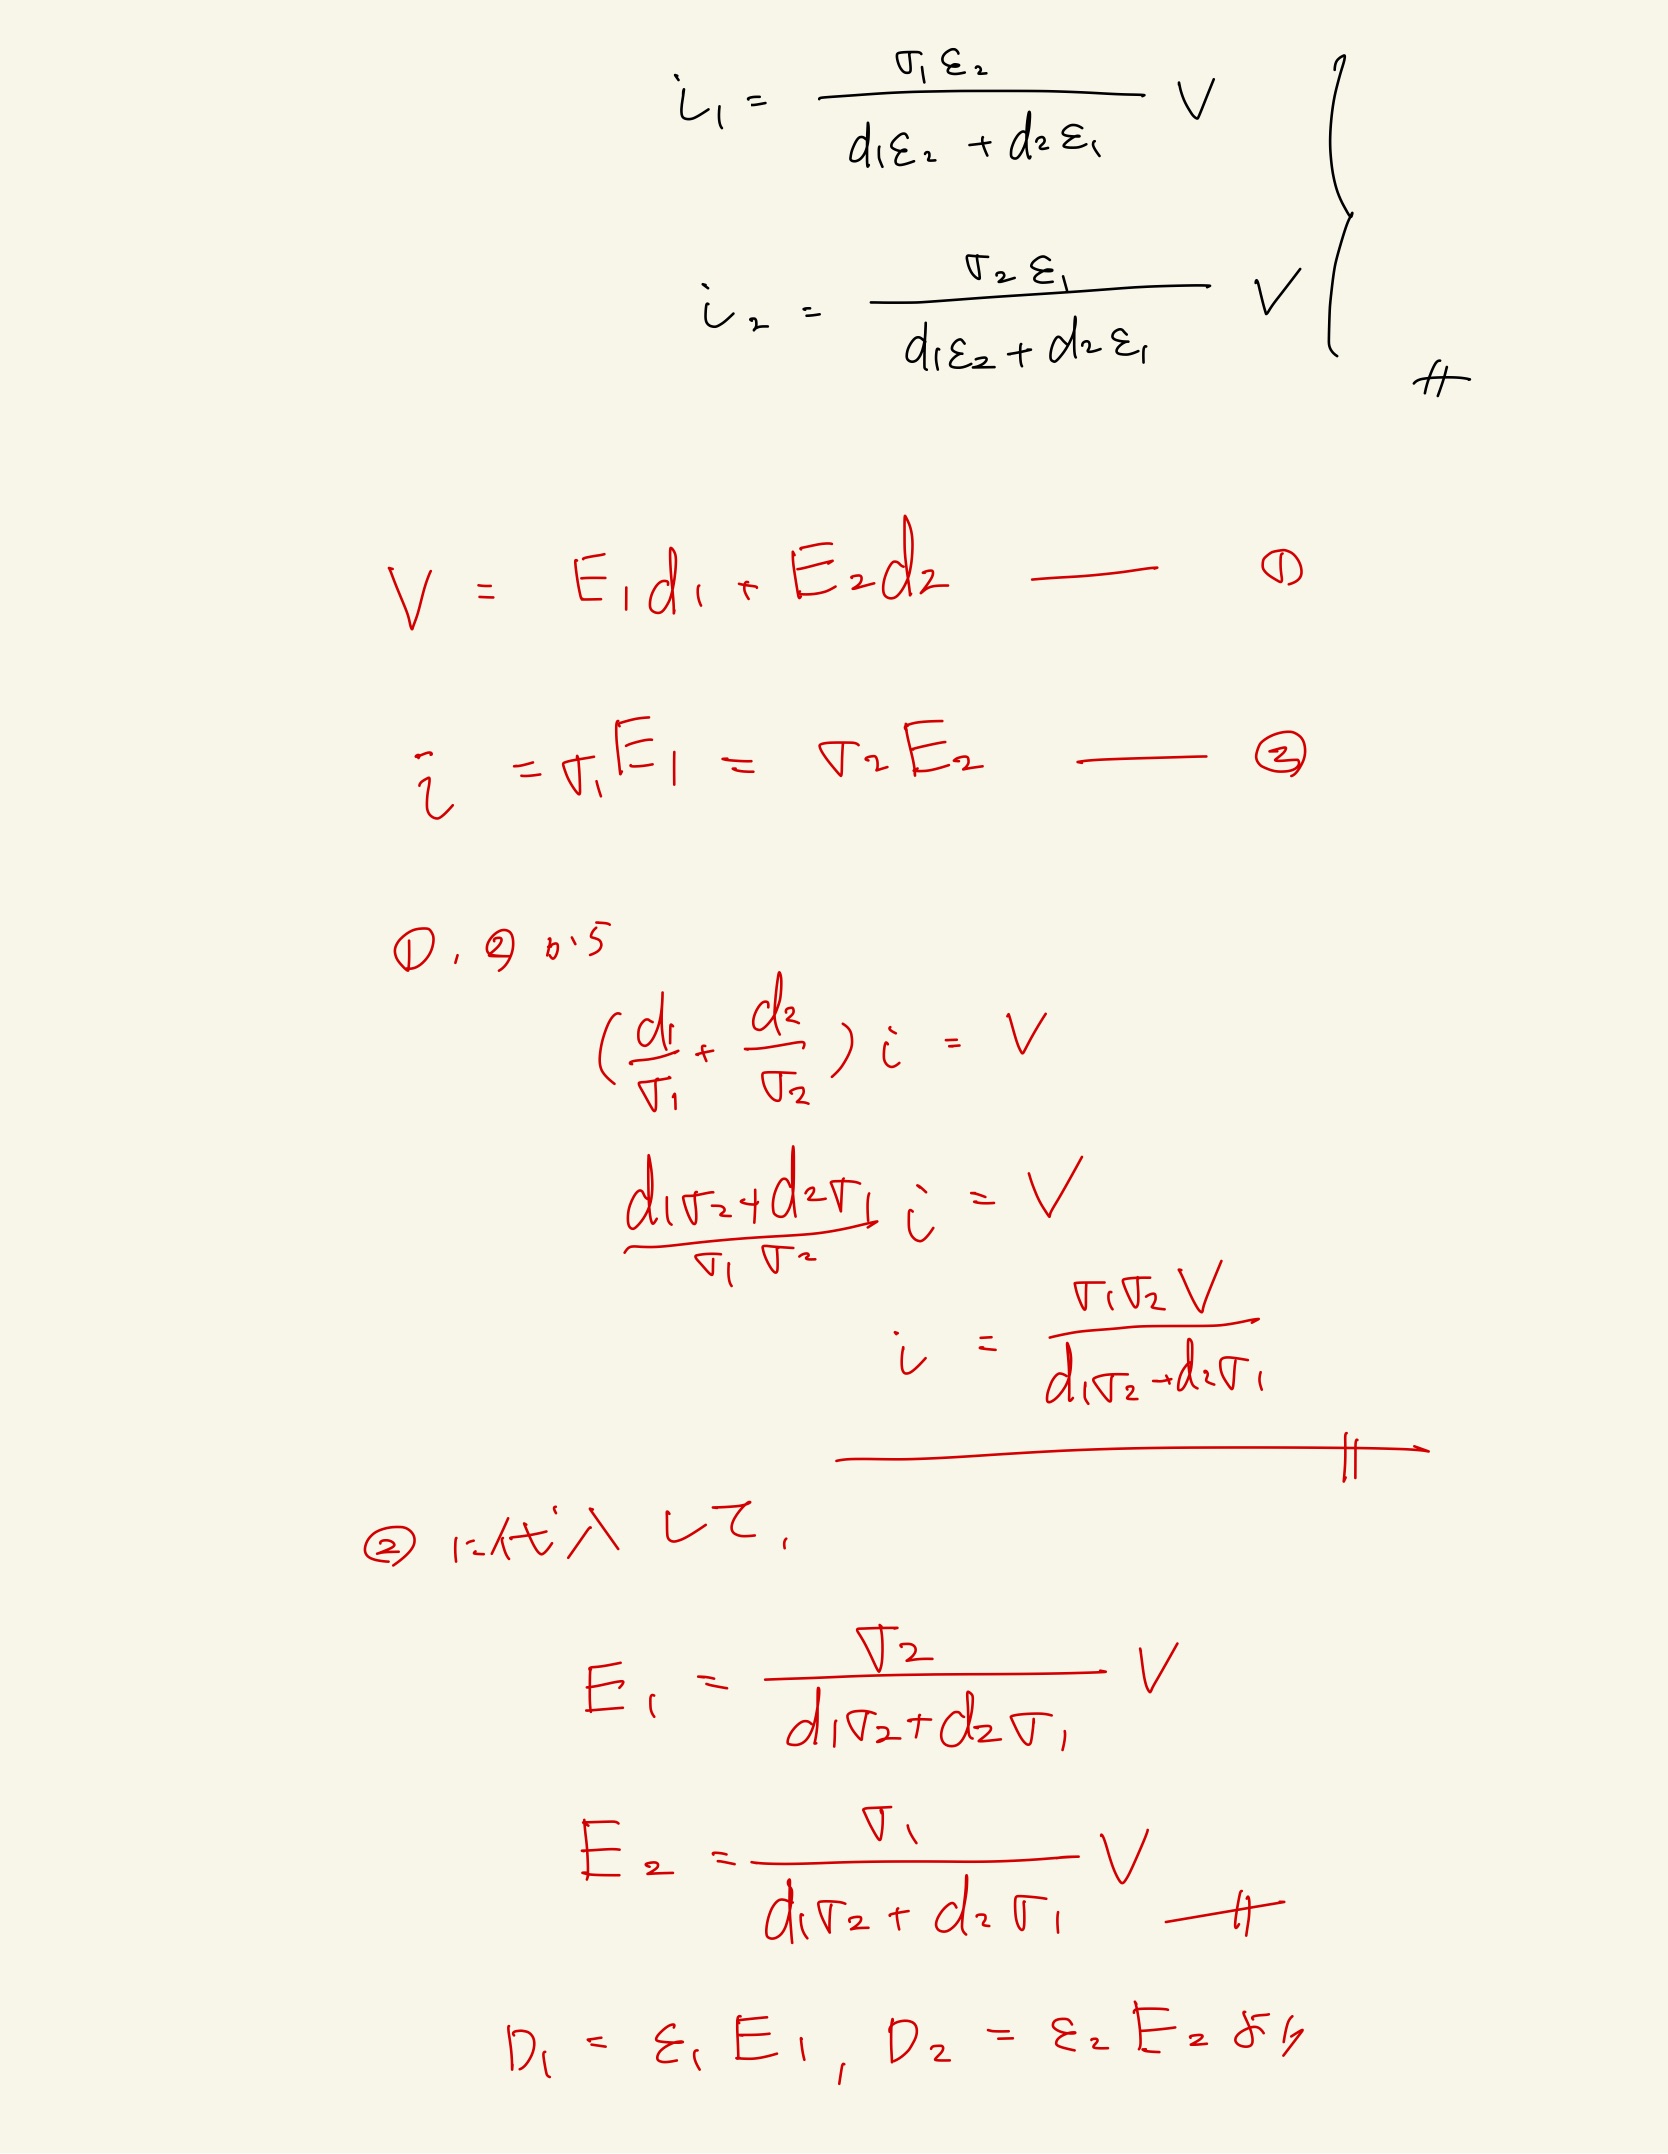 i₁ = σ₁ε₂ / (d₁ε₂ + d₂ε₁) V
i₂ = σ₂ε₁ / (d₁ε₂ + d₂ε₁) V
V = E₁d₁ + E₂d₂ ― ①
i = σ₁E₁ = σ₂E₂ ― ②
①, ②から
(d₁/σ₁ + d₂/σ₂) i = V
(d₁σ₂ + d₂σ₁) / (σ₁σ₂) i = V
i = σ₁σ₂V / (d₁σ₂ + d₂σ₁)
②に代入して,
E₁ = σ₂ / (d₁σ₂ + d₂σ₁) V
E₂ = σ₁ / (d₁σ₂ + d₂σ₁) V
D₁ = ε₁E₁, D₂ = ε₂E₂ より